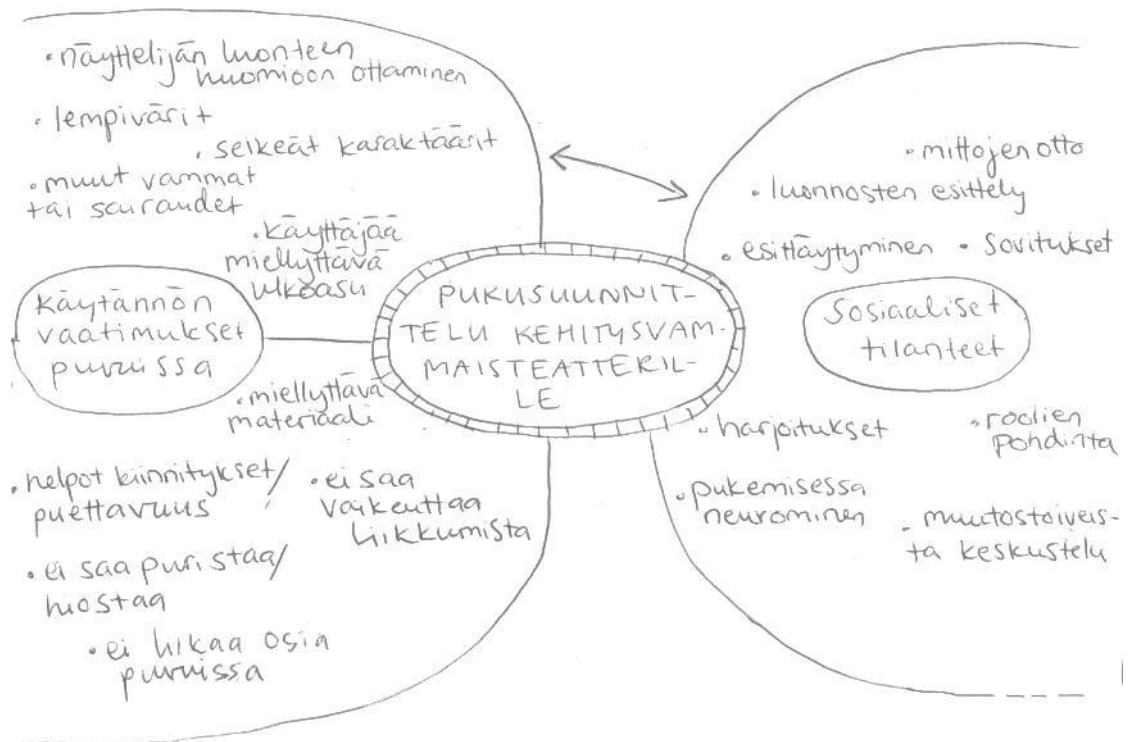 • näyttelijän luonteen
huomioon ottaminen
• lempivärit
• selkeät karaktäärit
• muut vammat
tai sairaudet
• käyttäjää
miellyttävä
ulkoasu
käytännön
vaatimukset
puvuissa
• miellyttävä
materiaali
• helpot kiinnitykset/
puettavuus
• ei saa
vaikeuttaa
liikkumista
• ei saa puristaa/
hiostaa
• ei liikaa osia
puvuissa
PUKUSUUNNIT-
TELU KEHITYSVAM-
MAISTEATTERIL-
LE
• mittojen otto
• luonnosten esittely
• esittäytyminen
• sovitukset
Sosiaaliset
tilanteet
• harjoitukset
• roolien
pohdinta
• pukemisessa
neuvominen
• muutostoiveis-
ta keskustelu